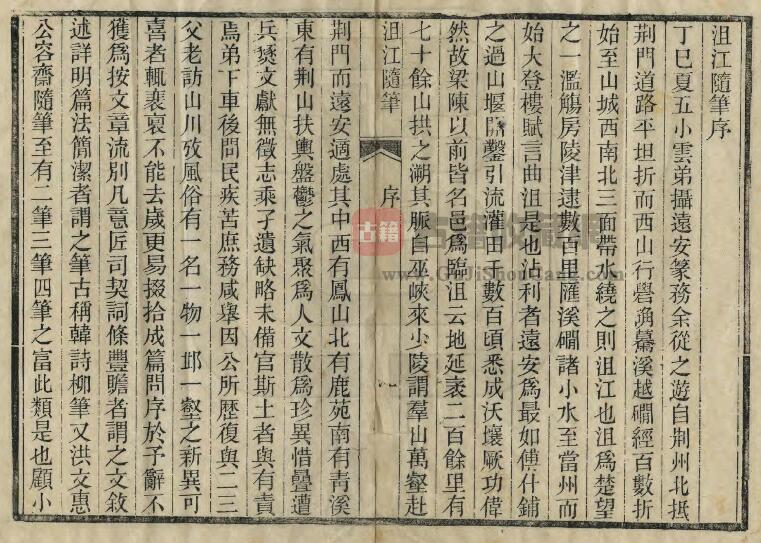 沮江隨筆序
丁巳夏五小雲弟攝遠安篆務余從之遊自荆州北抵
荆門道路平坦折而西山行礐确驀溪越磵經百數折
始至山城西南北三面帶水繞之則沮江也沮爲楚望
之一濫觴房陵津逮數百里匯溪磵諸小水至當州而
始大登樓賦言曲沮是也沾利者遠安爲最如傅什鋪
之過山堰開鑿引流灌田千數百頃悉成沃壤厥功偉
然故梁陳以前皆名邑爲臨沮云地延袤二百餘里有
七十餘山拱之溯其脈自巫峽來少陵謂羣山萬壑赴
沮江隨筆 序
荆門而遠安適處其中西有鳳山北有鹿苑南有靑溪
東有荆山扶輿盤鬱之氣聚爲人文散爲珍異惜疊遭
兵燹文獻無徵志乘孑遺缺略未備官斯土者與有責
焉弟下車後問民疾苦庶務咸舉因公所歷復與二三
父老訪山川攷風俗有一名一物一邱一壑之新異可
喜者輒裒裒不能去歲更易掇拾成篇問序於予辭不
獲爲按文章流別凡意匠司契詞條豐贍者謂之文敘
述詳明篇法簡潔者謂之筆古稱韓詩柳筆又洪文惠
公容齋隨筆至有二筆三筆四筆之富此類是也顧小
古籍
www.GuJiShouCang.com